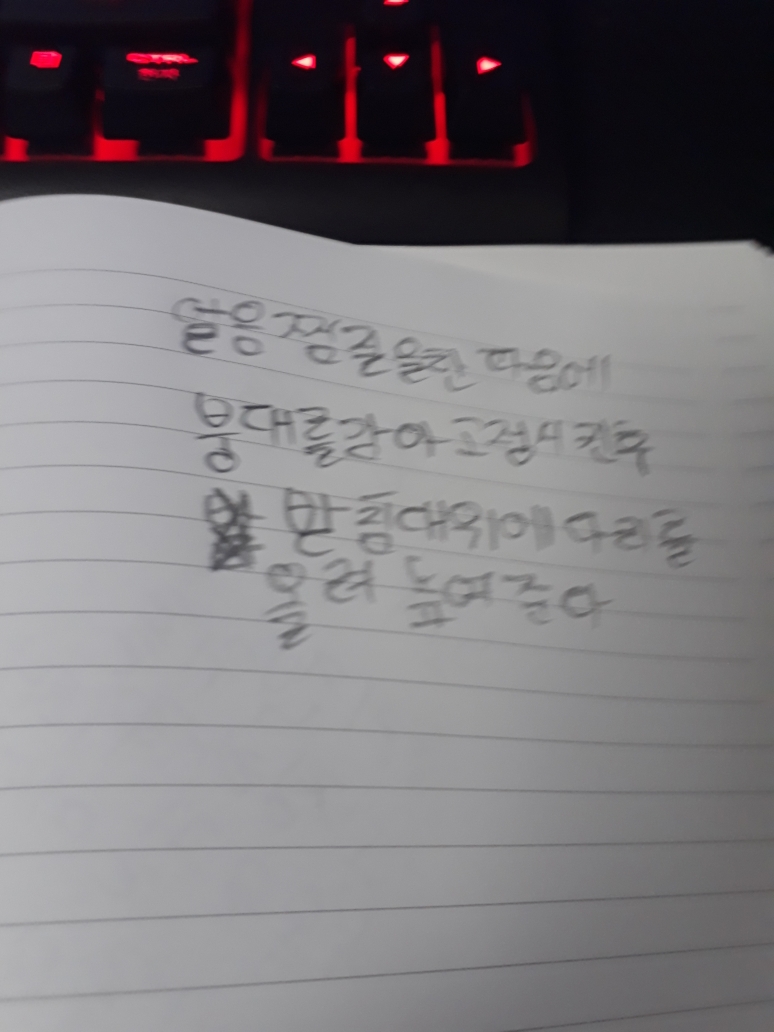 얼음찜질을한 다음에
붕대를감아고정시킨후
받침대위에다리를
올려 높여준다